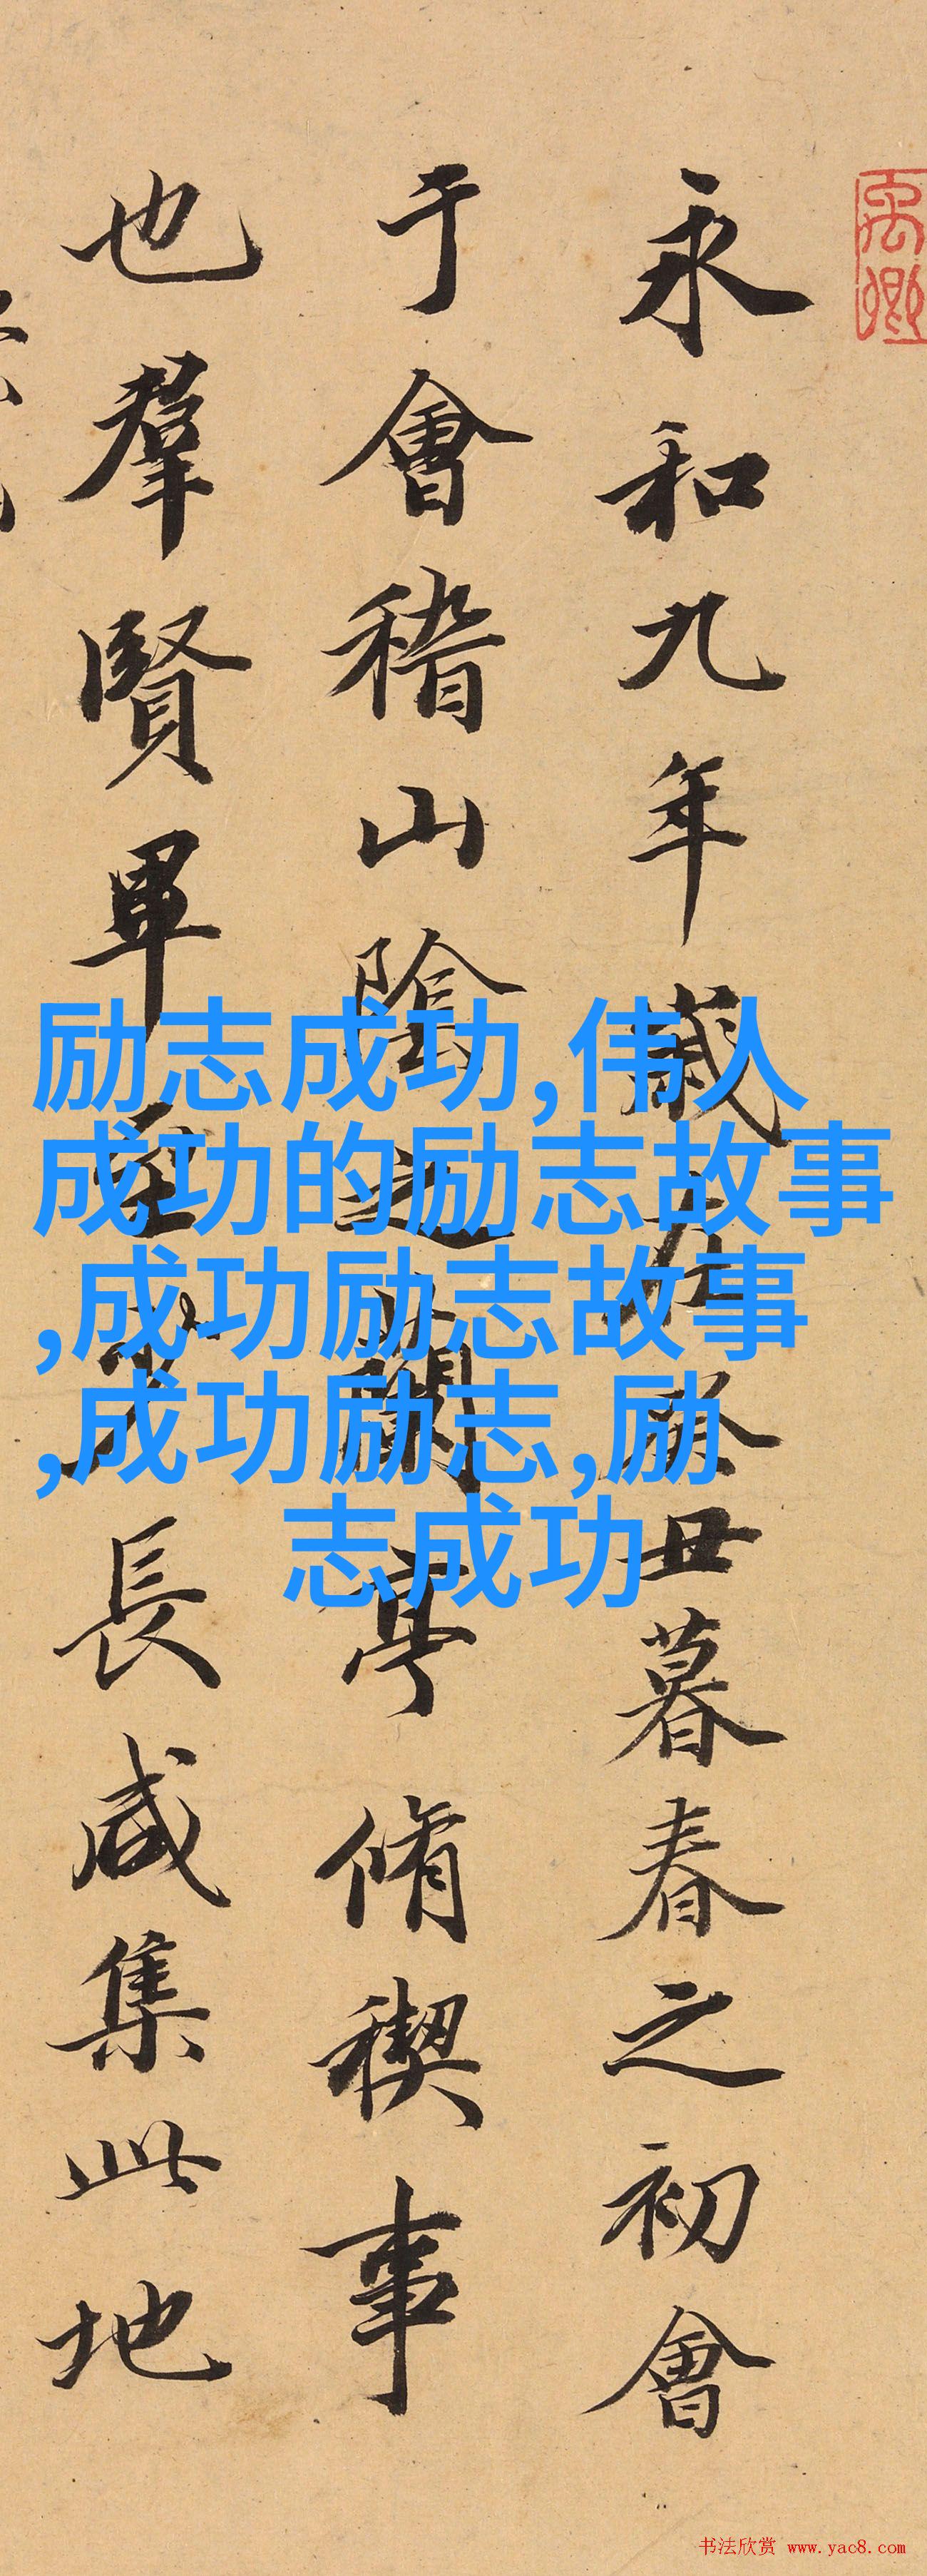 永和九年歲在癸丑暮春之初會
于會稽山陰之蘭亭脩稧事
也羣賢畢至少長咸集此地
励志成功,伟人
成功的励志故事
,成功励志故事
,成功励志,励
志成功
书法欣赏 www.yac8.com